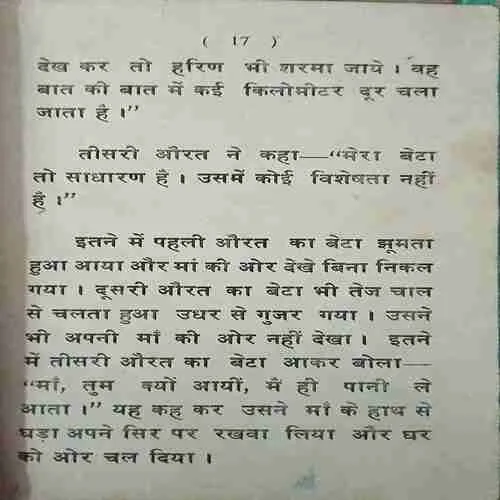 ( 17 )
देख कर तो हरिण भी शरमा जाये । वह
बात की बात में कई किलोमीटर दूर चला
जाता है ।”
तीसरी औरत ने कहा—“मेरा बेटा
तो साधारण है । उसमें कोई विशेषता नहीं
है ।”
इतने में पहली औरत का बेटा झूमता
हुआ आया और मां की ओर देखे बिना निकल
गया । दूसरी औरत का बेटा भी तेज चाल
से चलता हुआ उधर से गुजर गया । उसने
भी अपनी माँ की ओर नहीं देखा । इतने
में तीसरी औरत का बेटा आकर बोला—
“माँ, तुम क्यों आयीं, मैं ही पानी ले
आता ।” यह कह कर उसने माँ के हाथ से
घड़ा अपने सिर पर रखवा लिया और घर
की ओर चल दिया ।